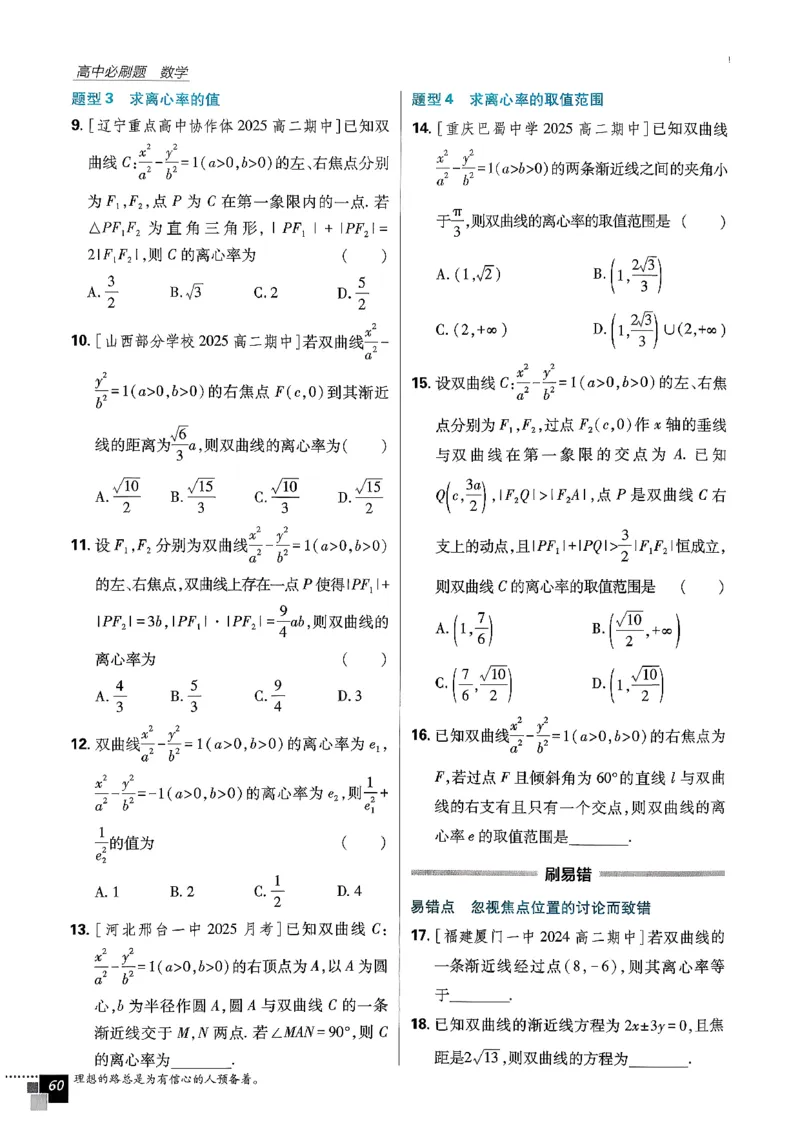 高中必刷题 数学
题型3 求离心率的值
9. [辽宁重点高中协作体2025高二期中]已知双
曲线C:x²/a²-y²/b²=1(a>0,b>0)的左、右焦点分别
为F₁,F₂,点P为C在第一象限内的一点. 若
△PF₁F₂为直角三角形,|PF₁|+|PF₂|=
2|F₁F₂|,则C的离心率为 ( )
A. 3/2 B. √3 C. 2 D. 5/2
10. [山西部分学校2025高二期中]若双曲线x²/a²-
y²/b²=1(a>0,b>0)的右焦点F(c,0)到其渐近
线的距离为√6/3 a,则双曲线的离心率为( )
A. √10/2 B. √15/3 C. √10/3 D. √15/2
11. 设F₁,F₂分别为双曲线x²/a²-y²/b²=1(a>0,b>0)
的左、右焦点,双曲线上存在一点P使得|PF₁|+
|PF₂|=3b,|PF₁|·|PF₂|=9/4 ab,则双曲线的
离心率为 ( )
A. 4/3 B. 5/3 C. 9/4 D. 3
12. 双曲线x²/a²-y²/b²=1(a>0,b>0)的离心率为e₁,
x²/a²-y²/b²=-1(a>0,b>0)的离心率为e₂,则1/e₁²+
1/e₂²的值为 ( )
A. 1 B. 2 C. 1/2 D. 4
13. [河北邢台一中2025月考]已知双曲线C:
x²/a²-y²/b²=1(a>0,b>0)的右顶点为A,以A为圆
心,b为半径作圆A,圆A与双曲线C的一条
渐近线交于M,N两点. 若∠MAN=90°,则C
的离心率为______.
题型4 求离心率的取值范围
14. [重庆巴蜀中学2025高二期中]已知双曲线
x²/a²-y²/b²=1(a>b>0)的两条渐近线之间的夹角小
于π/3,则双曲线的离心率的取值范围是 ( )
A. (1,√2) B. (1,2√3/3)
C. (2,+∞) D. (1,2√3/3)∪(2,+∞)
15. 设双曲线C:x²/a²-y²/b²=1(a>0,b>0)的左、右焦
点分别为F₁,F₂,过点F₂(c,0)作x轴的垂线
与双曲线在第一象限的交点为A. 已知
Q(c,3a/2),|F₂Q|>|F₂A|,点P是双曲线C右
支上的动点,且|PF₁|+|PQ|>3/2|F₁F₂|恒成立,
则双曲线C的离心率的取值范围是 ( )
A. (1,7/6) B. (√10/2,+∞)
C. (7/6,√10/2) D. (1,√10/2)
16. 已知双曲线x²/a²-y²/b²=1(a>0,b>0)的右焦点为
F,若过点F且倾斜角为60°的直线l与双曲
线的右支有且只有一个交点,则双曲线的离
心率e的取值范围是______.
刷易错
易错点 忽视焦点位置的讨论而致错
17. [福建厦门一中2024高二期中]若双曲线的
一条渐近线经过点(8,-6),则其离心率等
于______.
18. 已知双曲线的渐近线方程为2x±3y=0,且焦
距是2√13,则双曲线的方程为______.
60 理想的路总是为有信心的人预备着。